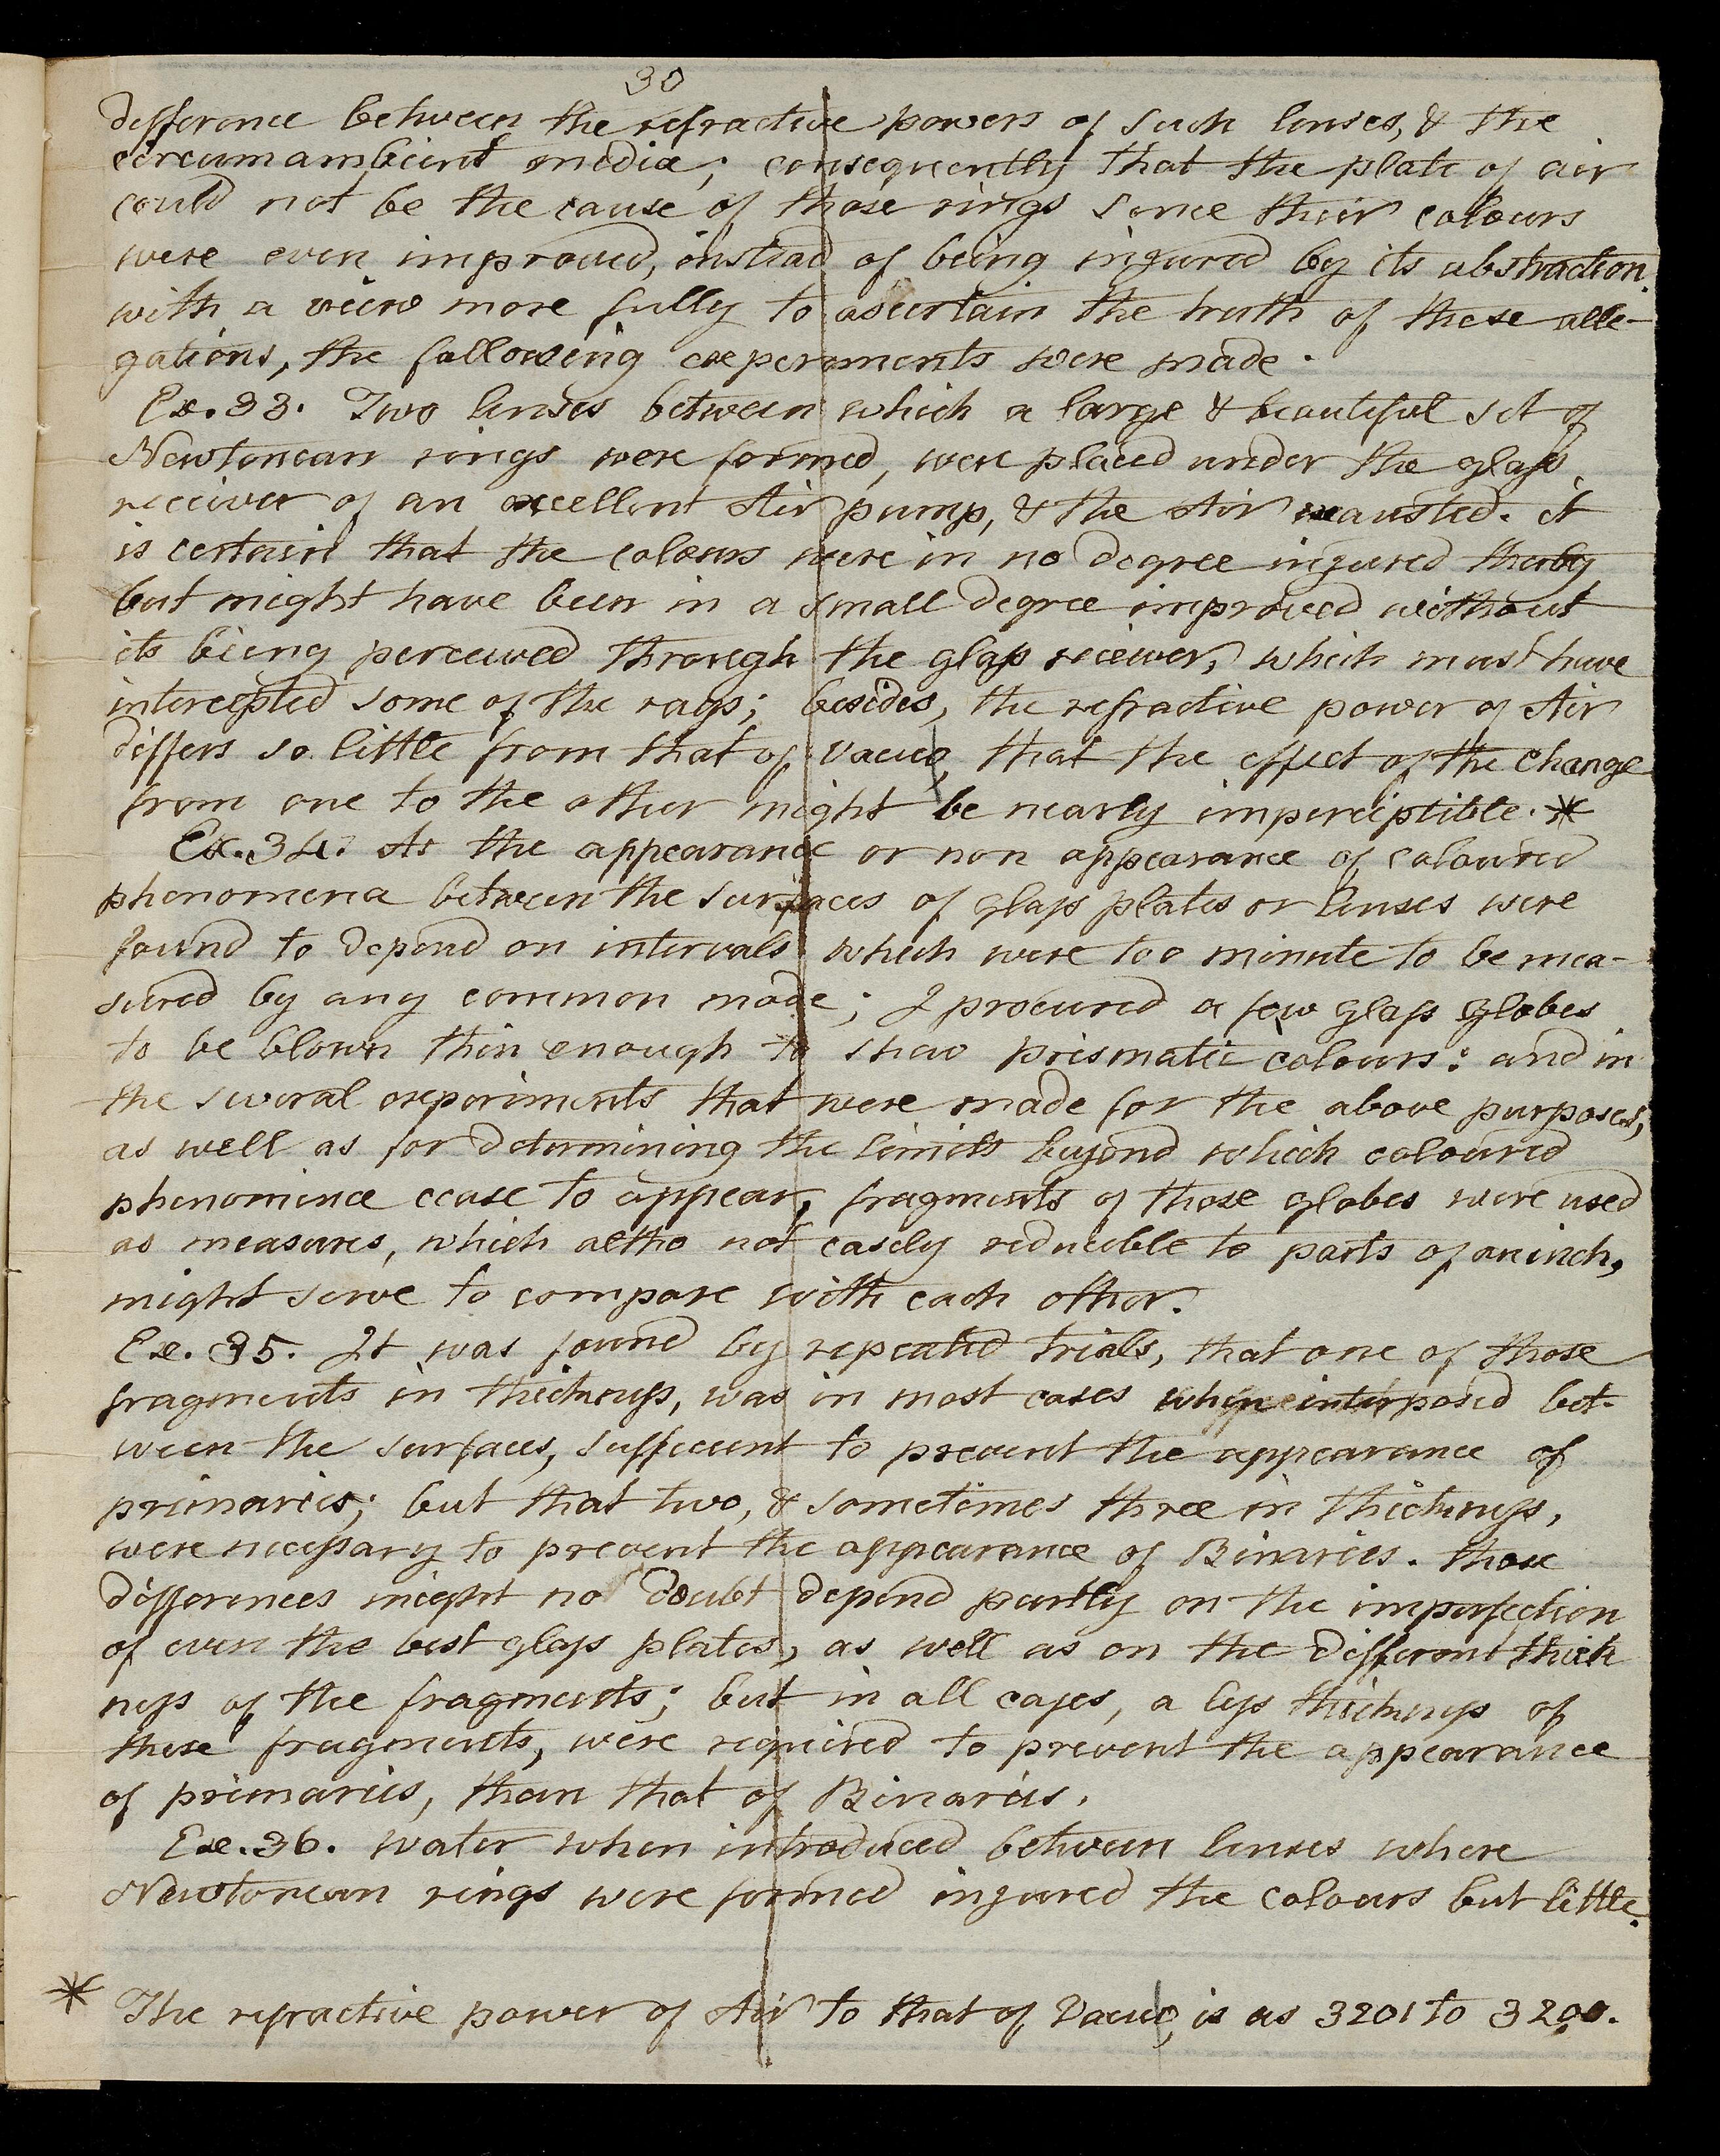 30
difference between the refractive powers of such lenses, & the
circumambient media; consequently that the plate of air
could not be the cause of those rings since their colours
were even improved, instead of being injured by its abstraction.
with a view more fully to ascertain the truth of these alle-
gations, the following experiments were made.
Ex. 33. Two lenses between which a large & beautiful set of
Newtonean rings were formed, were placed under the glass
receiver of an excellent Air pump, & the Air exausted. it
is certain that the colours were in no degree injured therby
but might have been in a small degree improved without
its being perceived through the glass receiver, which must have
intercepted some of the rays; besides, the refractive power of Air
differs so little from that of vacuo, that the effect of the change
from one to the other might be nearly imperceptible. *
Ex. 34. As the appearance or non appearance of coloured
phenomena between the surfaces of glass plates or lenses were
found to depend on intervals which were too minute to be mea-
sured by any common mode; I procured a few glass globes
to be blown thin enough to shew prismatic colours: and in
the several experiments that were made for the above purposes,
as well as for determining the limits beyond which coloured
phenomence cease to appear, fragments of those globes were used
as measures, which altho not easely reducible to parts of an inch,
might serve to compare with each other.
Ex. 35. It was found by repeated trials, that one of those
fragments in thickness, was in most cases when interposed bet-
ween the surfaces, sufficient to prevent the appearance of
primaries; but that two, & sometimes three in thickness,
were necessary to prevent the appearance of Binaries. those
differences might no doubt depend partly on the imperfection
of even the best glass plates, as well as on the different thick
ness of the fragments; but in all cases, a less thickness of
these fragments, were required to prevent the appearance
of primaries, than that of Binaries.
Ex. 36. water when introduced between lenses where
Newtonean rings were formed injured the colours but little.
* The refractive power of Air to that of Vacuo, is as 3201 to 3200.